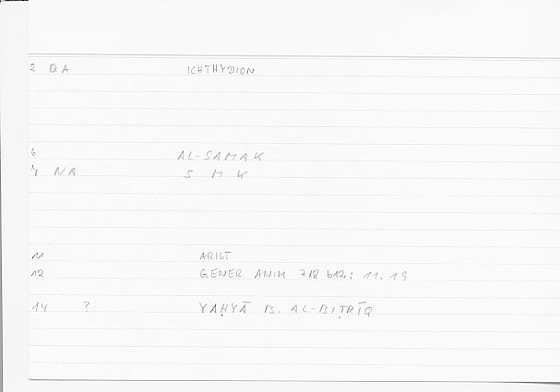 2 QA ICHTHYDION
6 AL-SAMAK
NA S M K
11 ARIST
12 GENER ANIM 718 b12; 11.19
14 ? YAḤYĀ B. AL-BIṬRĪQ